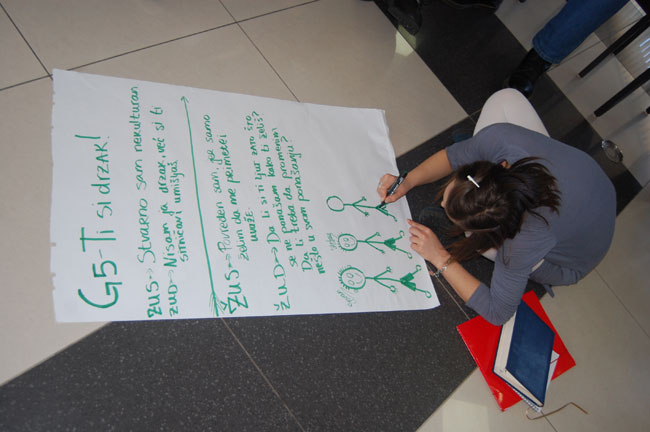 G5-Ti si drzak!
ŽUS-> Stvarno sam nekulturan
ŽUD-> Nisam ja drzak, već si ti
sitničari umišljaš
ŽUS-> Povređen sam, ja samo
želim da me primereći
uvaže.
ŽUD-> Da li si ti ljut zato što
se ne ponašam kako ti želiš?
Da li treba da promenim
nešto u svom ponašanju?